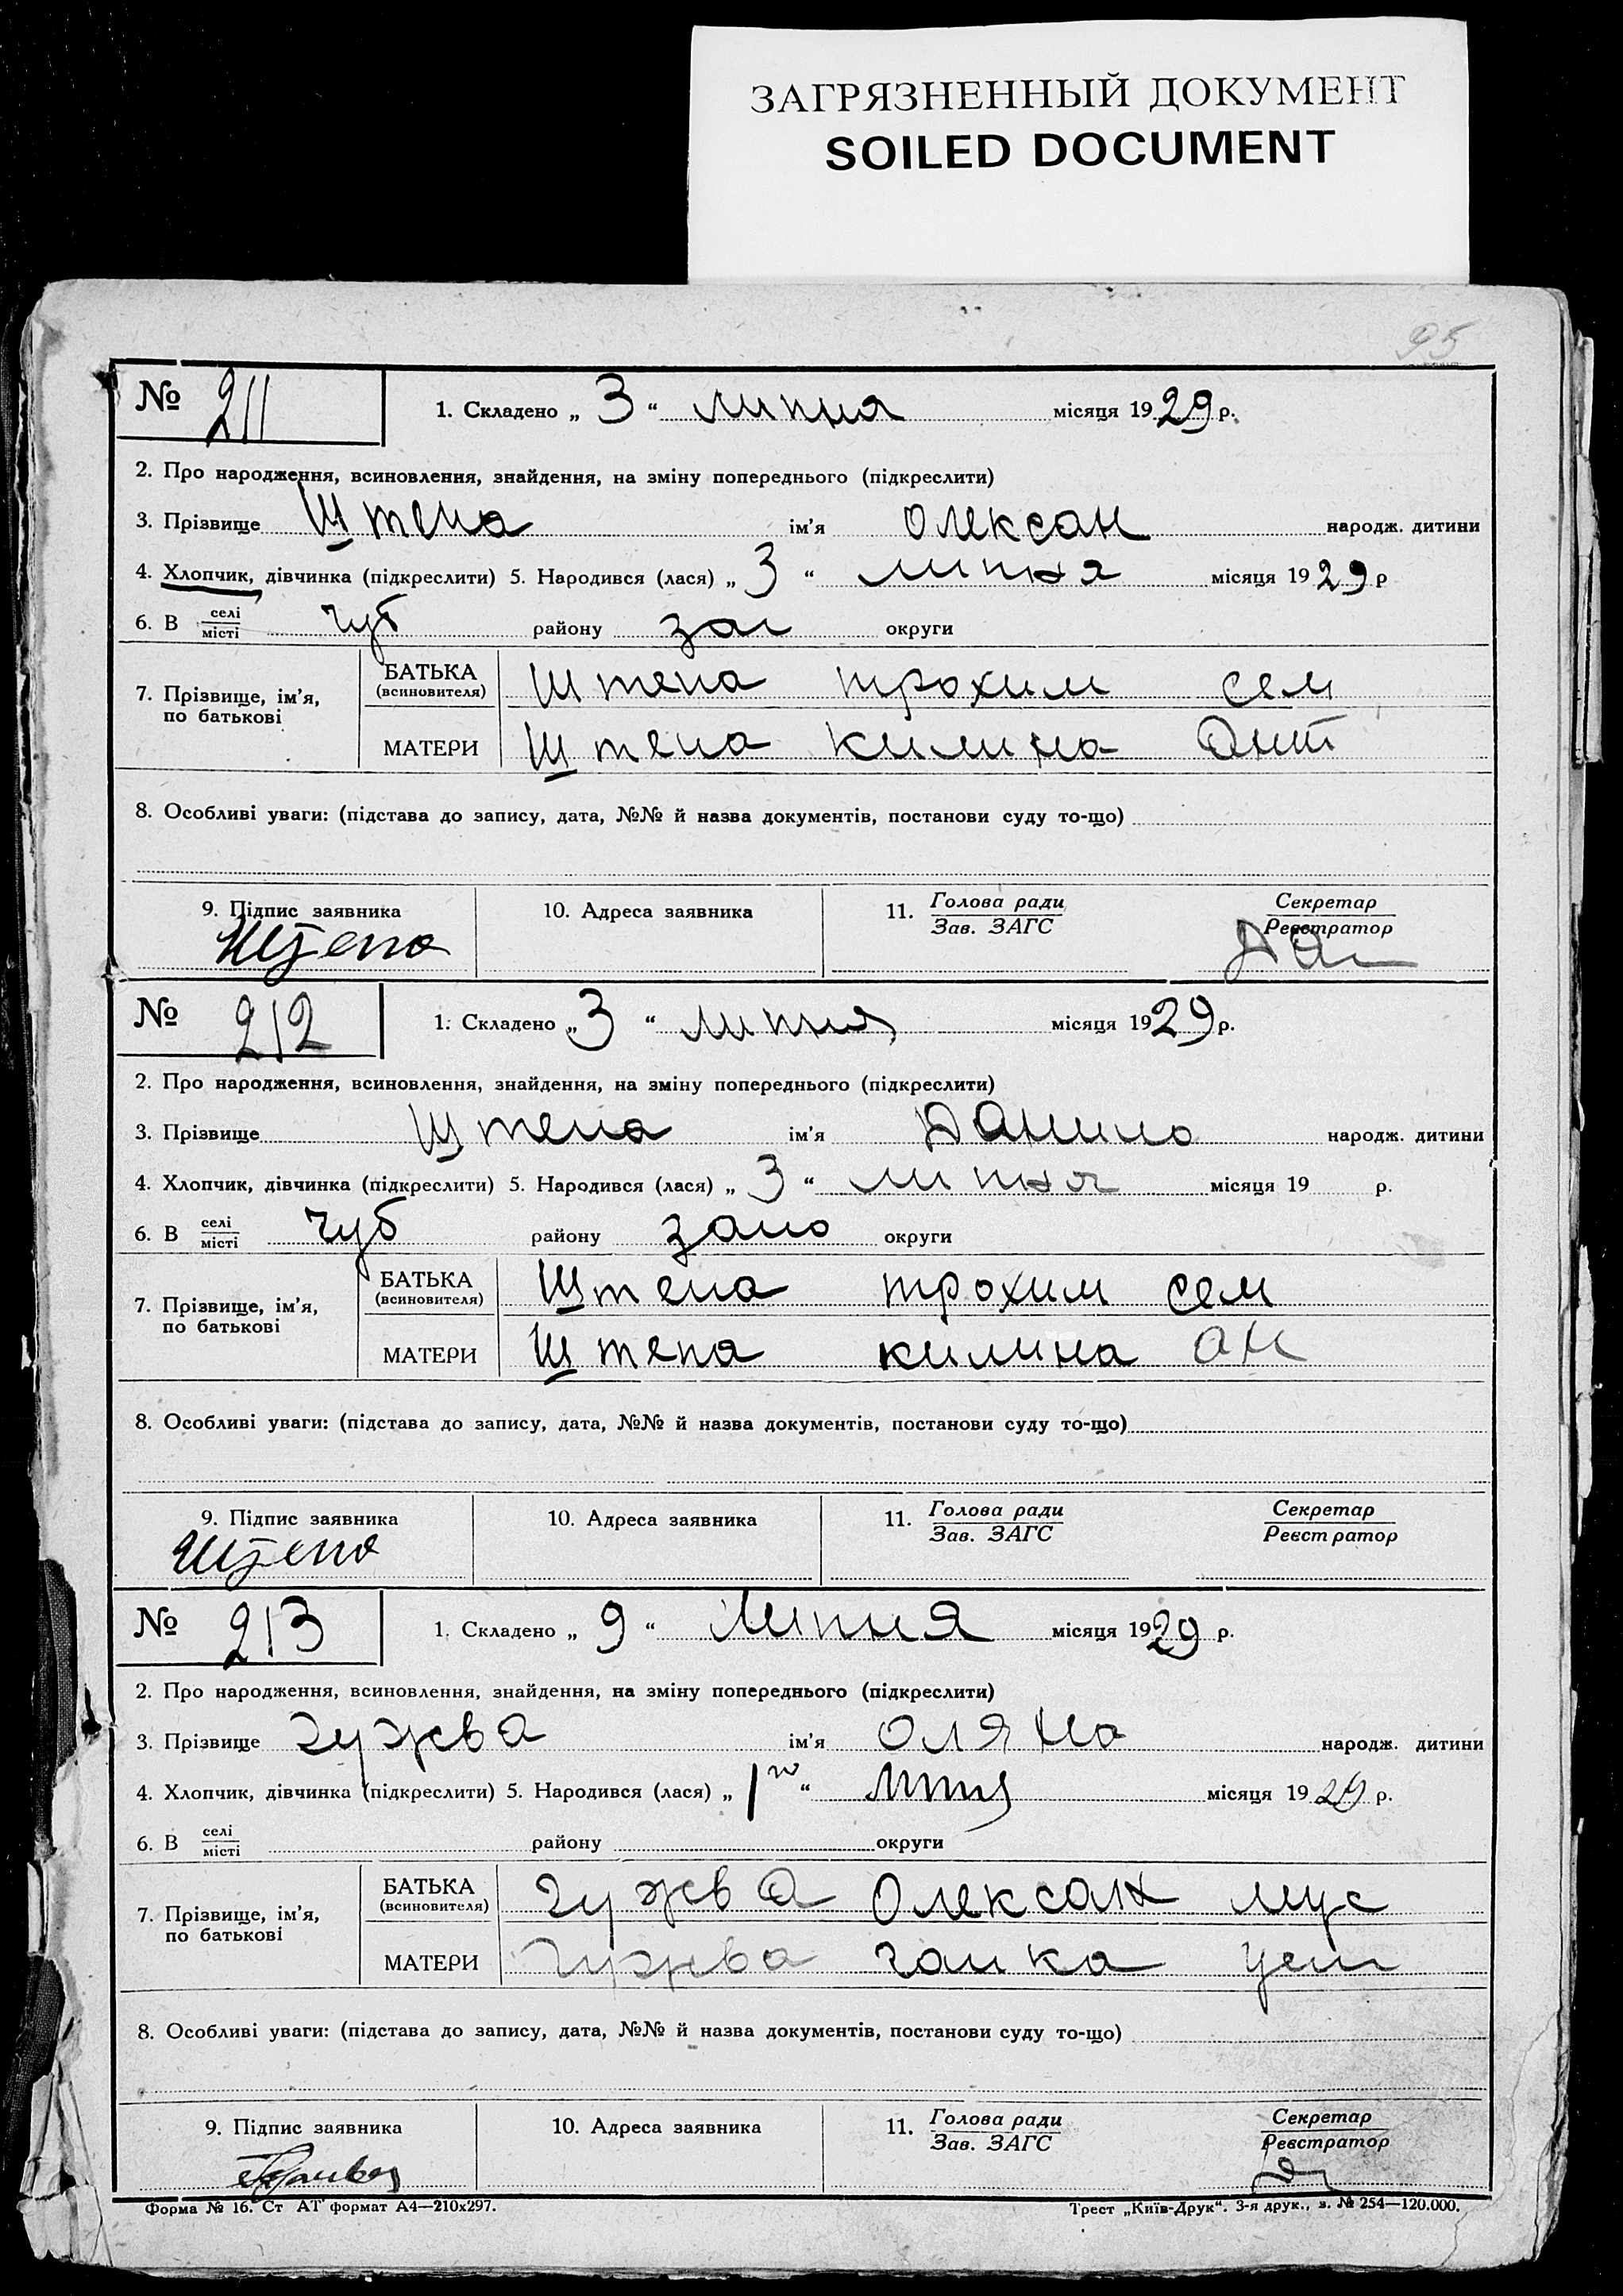 ЗАГРЯЗНЕННЫЙ ДОКУМЕНТ
SOILED DOCUMENT
95
№ 211 1. Складено „ 3 “ липня місяця 1929 р.
2. Про народження, всиновлення, знайдення, на зміну попереднього (підкреслити)
3. Прізвище Штепа ім'я Олексан народж. дитини
4. Хлопчик, дівчинка (підкреслити) 5. Народився (лася) „ 3 “ липня місяця 1929 р
6. В селі/місті Чуб району зап округи
7. Прізвище, ім'я, по батькові
БАТЬКА (всиновителя) Штепа трохим сем
МАТЕРИ Штепа килина Онт
8. Особливі уваги: (підстава до запису, дата, №№ й назва документів, постанови суду то-що)
9. Підпис заявника 10. Адреса заявника 11. Голова ради/Зав. ЗАГС Секретар/Реєстратор
Штепа
№ 212 1. Складено „ 3 “ липня місяця 1929 р.
2. Про народження, всиновлення, знайдення, на зміну попереднього (підкреслити)
3. Прізвище Штепа ім'я Данило народж. дитини
4. Хлопчик, дівчинка (підкреслити) 5. Народився (лася) „ 3 “ липня місяця 19 р.
6. В селі/місті Чуб району запо округи
7. Прізвище, ім'я, по батькові
БАТЬКА (всиновителя) Штепа трохим сем
МАТЕРИ Штепа килина ан
8. Особливі уваги: (підстава до запису, дата, №№ й назва документів, постанови суду то-що)
9. Підпис заявника 10. Адреса заявника 11. Голова ради/Зав. ЗАГС Секретар/Реєстратор
Штепа
№ 213 1. Складено „ 9 “ Липня місяця 1929 р.
2. Про народження, всиновлення, знайдення, на зміну попереднього (підкреслити)
3. Прізвище Чужва ім'я Оляна народж. дитини
4. Хлопчик, дівчинка (підкреслити) 5. Народився (лася) „ 1го “ Липня місяця 1929 р.
6. В селі/місті району округи
7. Прізвище, ім'я, по батькові
БАТЬКА (всиновителя) Чужва Олексан мус
МАТЕРИ Чужва ганка
8. Особливі уваги: (підстава до запису, дата, №№ й назва документів, постанови суду то-що)
9. Підпис заявника 10. Адреса заявника 11. Голова ради/Зав. ЗАГС Секретар/Реєстратор
Форма № 16. Ст АТ формат А4—210х297. Трест „Київ-Друк“. 3-я друк., з. № 254—120.000.